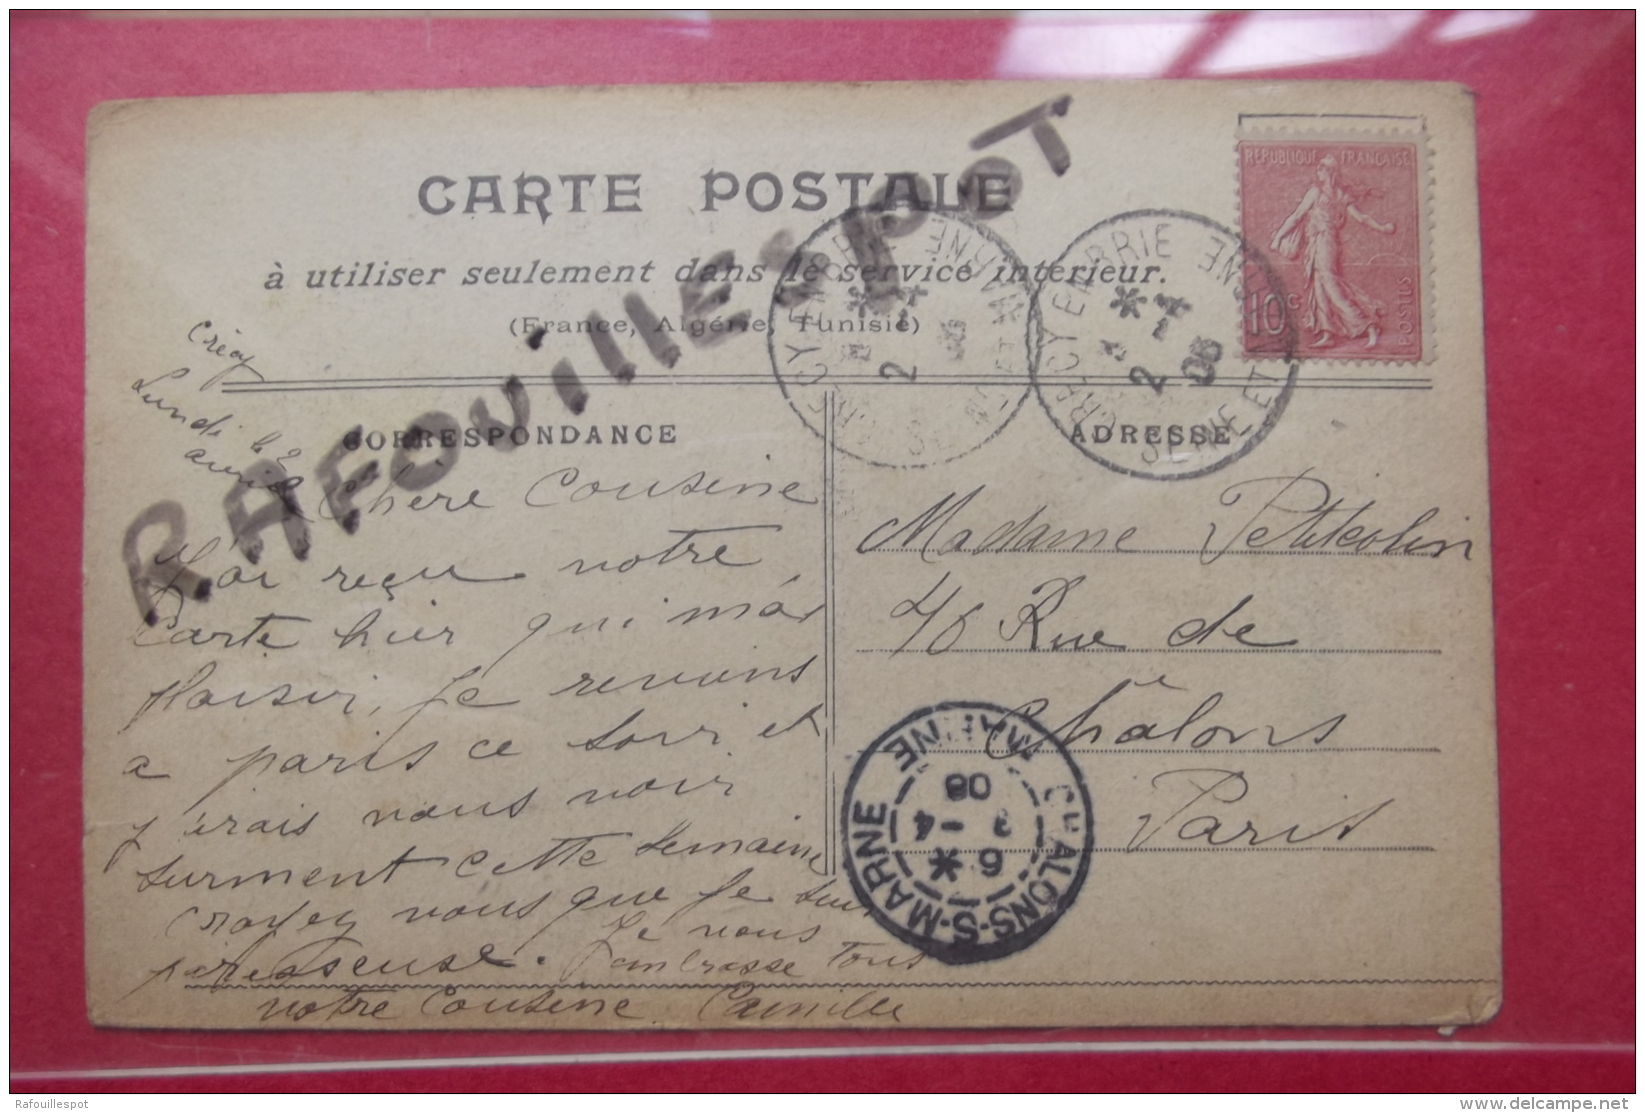 CARTE POSTALE
à utiliser seulement dans le service intérieur.
(France, Algérie, Tunisie)
RAFOUILLESPOT
RÉPUBLIQUE FRANÇAISE
10c
POSTES
CRÉCY EN BRIE
SEINE ET MARNE
2
CRÉCY EN BRIE
SEINE ET MARNE
2
06
CORRESPONDANCE
ADRESSE
Crécy
Lundi le 2
avril
Chère Cousine
J'ai reçu votre
Carte hier qui m'a
plaisir, je reviens
a paris ce soir et
j'irais vous voir
surment cette semaine
croyez vous que je suis
paresseuse. Je vous
embrasse tous
votre Cousine Camille
Madame Petitcolin
46 Rue de
Châlons
Paris
CHALONS-S-MARNE
MARNE
6 *
3 -4
06
Rafouillespot
www.delcampe.net